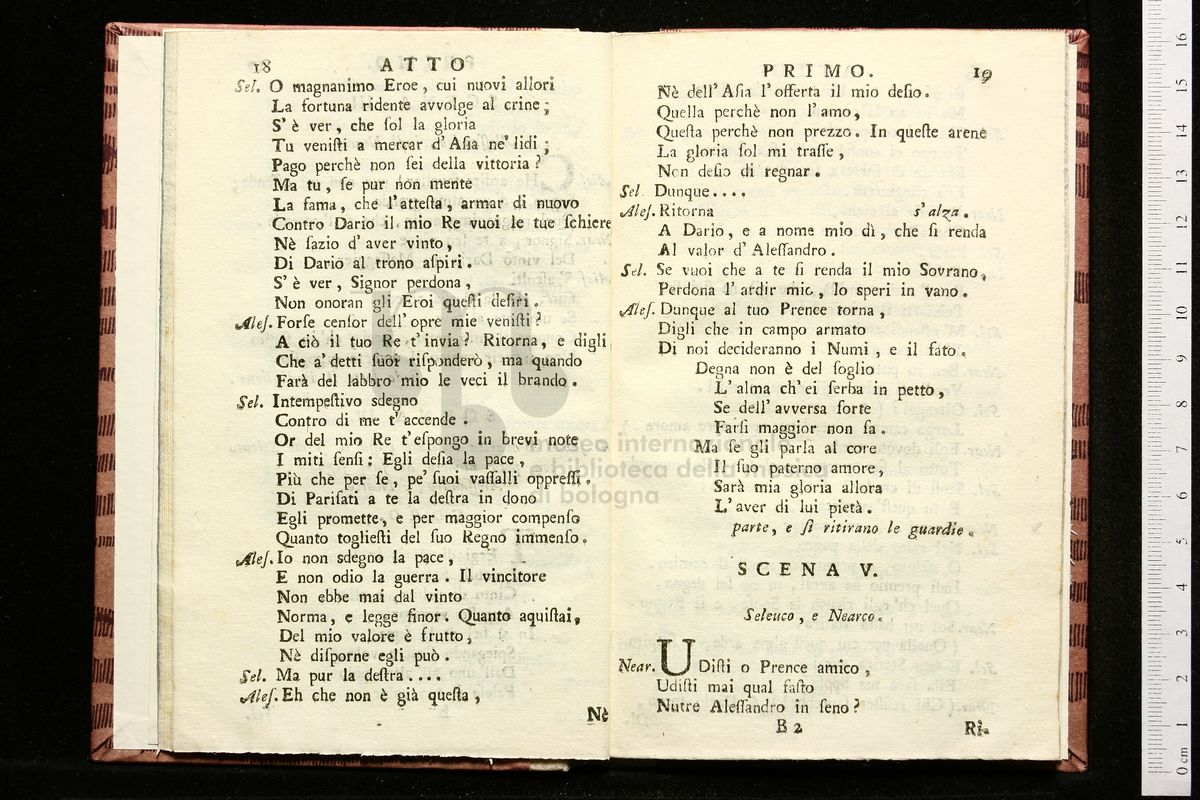 18 ATTO
Sel. O magnanimo Eroe, cui nuovi allori
La fortuna ridente avvolge al crine;
S' è ver, che ſol la gloria
Tu veniſti a mercar d' Aſia ne' lidi;
Pago perchè non ſei della vittoria?
Ma tu, ſe pur non mente
La fama, che l'atteſta, armar di nuovo
Contro Dario il mio Re vuoi le tue ſchiere
Nè ſazio d' aver vinto,
Di Dario al trono aſpiri.
S' è ver, Signor perdona,
Non onoran gli Eroi queſti deſiri.
Aleſ. Forſe cenſor dell' opre mie veniſti?
A ciò il tuo Re t' invia? Ritorna, e digli
Che a' detti ſuoi riſponderò, ma quando
Farà del labbro mio le veci il brando.
Sel. Intempeſtivo sdegno
Contro di me t' accende.
Or del mio Re t' eſpongo in brevi note
I miti ſenſi; Egli deſia la pace,
Più che per ſe, pe' ſuoi vaſſalli oppreſſi.
Di Pariſati a te la deſtra in dono
Egli promette, e per maggior compenſo
Quanto toglieſti del ſuo Regno immenſo.
Aleſ. Io non sdegno la pace,
E non odio la guerra. Il vincitore
Non ebbe mai dal vinto
Norma, e legge finor. Quanto aquiſtai,
Del mio valore è frutto,
Nè diſporne egli può.
Sel. Ma pur la deſtra....
Aleſ. Eh che non è già queſta,
Nè
PRIMO. 19
Nè dell' Aſia l' offerta il mio deſio.
Quella perchè non l' amo,
Queſta perchè non prezzo. In queſte arene
La gloria ſol mi traſſe,
Non deſio di regnar.
Sel. Dunque....
Aleſ. Ritorna s' alza.
A Dario, e a nome mio dì, che ſi renda
Al valor d' Aleſſandro.
Sel. Se vuoi che a te ſi renda il mio Sovrano,
Perdona l' ardir mio, lo speri in vano.
Aleſ. Dunque al tuo Prence torna,
Digli che in campo armato
Di noi decideranno i Numi, e il fato.
Degna non è del ſoglio
L' alma ch' ei ſerba in petto,
Se dell' avverſa ſorte
Farſi maggior non ſa.
Ma ſe gli parla al core
Il ſuo paterno amore,
Sarà mia gloria allora
L' aver di lui pietà.
parte, e ſi ritirano le guardie.
SCENA V.
Seleuco, e Nearco.
Near. UDiſti o Prence amico,
Udiſti mai qual faſto
Nutre Aleſſandro in ſeno?
B 2 Ri-
museo internazionale
e biblioteca della musica
di bologna
0 cm 1 2 3 4 5 6 7 8 9 10 11 12 13 14 15 16